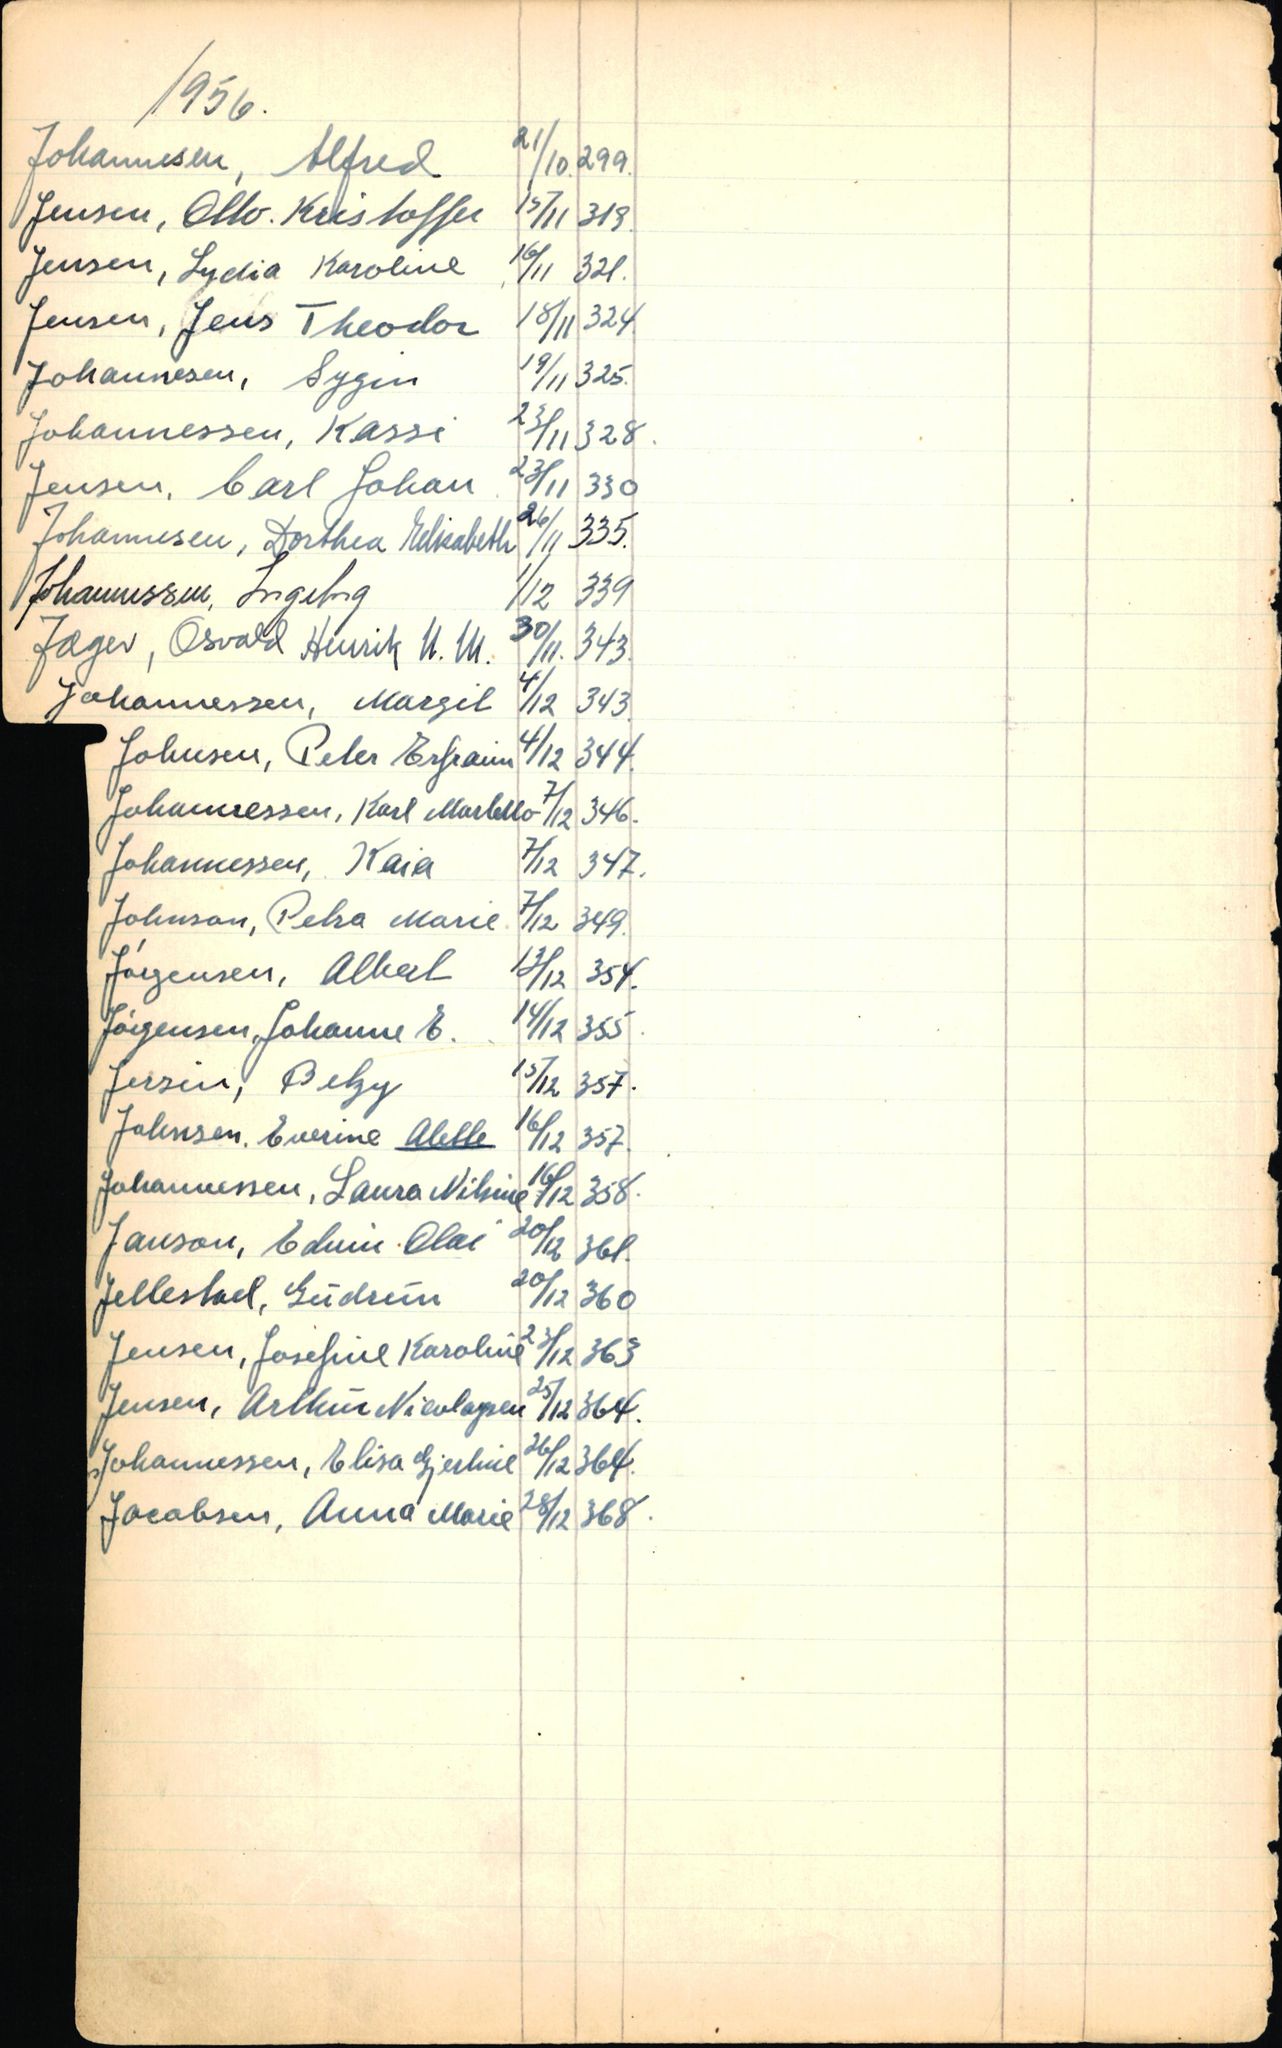 1956.
Johannesen, Alfred 21/10. 299.
Jensen, Otto. Kristoffer 15/11 319.
Jensen, Lydia Karoline 16/11 321.
Jensen, Jens Theodor 18/11 324
Johannesen, Sygin 19/11 325.
Johannessen, Kassi 23/11 328.
Jensen, Carl Johan 23/11 330
Johannesen, Dorthea Elisabeth 26/11 335.
Johannessen, Ingebrg 1/12 339
Jæger, Osvald Henrik U. M. 30/11. 343.
Johannessen, Margit 4/12 343.
Johnsen, Peter Erfraim 4/12 344.
Johannessen, Karl 7/12 346.
Johannessen, Kaia 7/12 347.
Johnson, Petra Marie 7/12 349.
Jörgensen, Albert 13/12 354.
Jörgensen, Johanne E. 14/12 355.
Jersin, Betzy 15/12 357.
Johnsen. Everine Alette 16/12 357.
Johannessen, Laura Nilsine 16/12 358.
Janson, Edwin Olai 20/12 361.
Jellestad, Gudrun 20/12 360
Jensen, Josefine Karoline 23/12 363
Jensen, Arthur Nicolaysen 25/12 364.
Johannessen, Elisa Gjertine 26/12 364.
Jacobsen, Anna Marie 28/12 368.